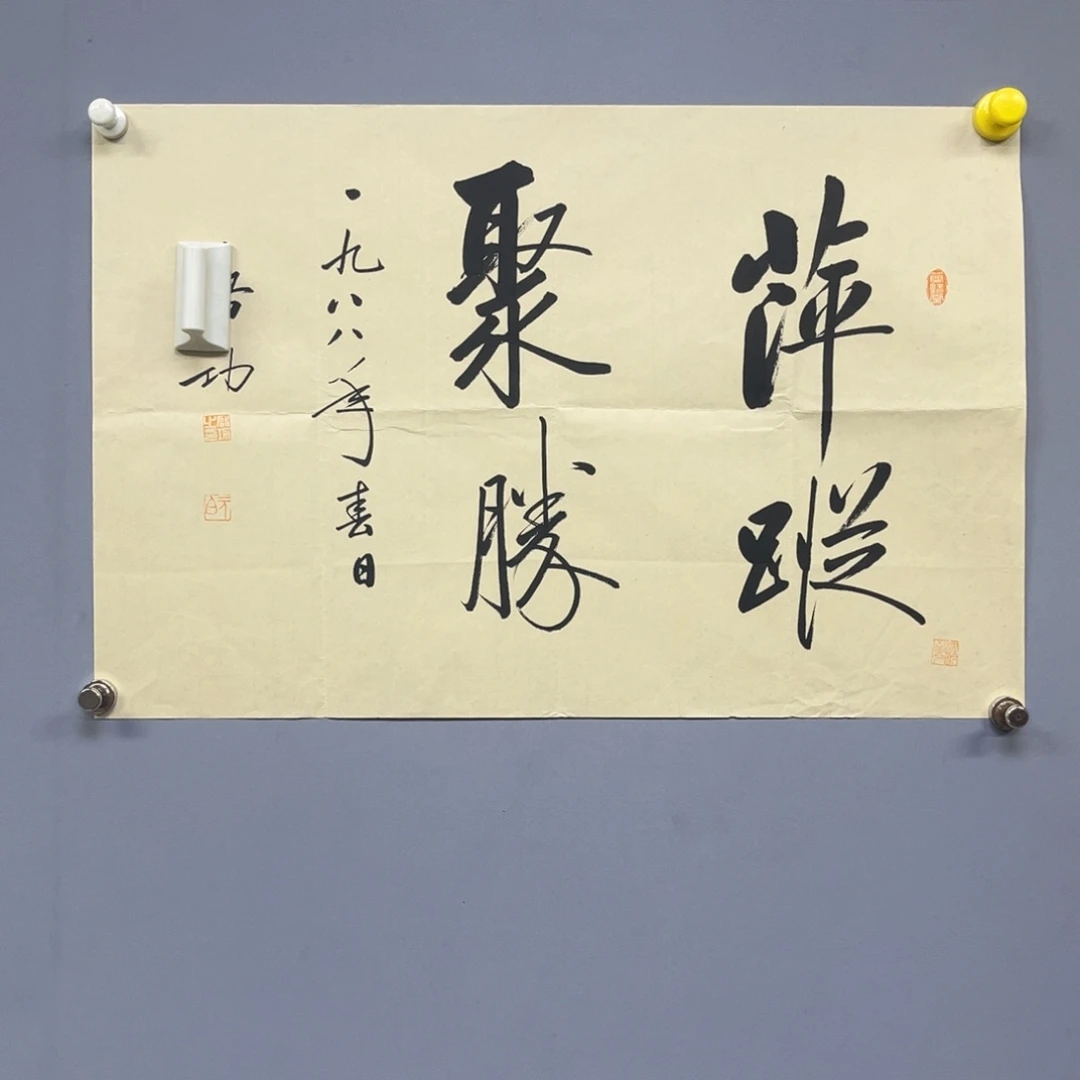 萍蹤
聚勝
一九八八年春日
功